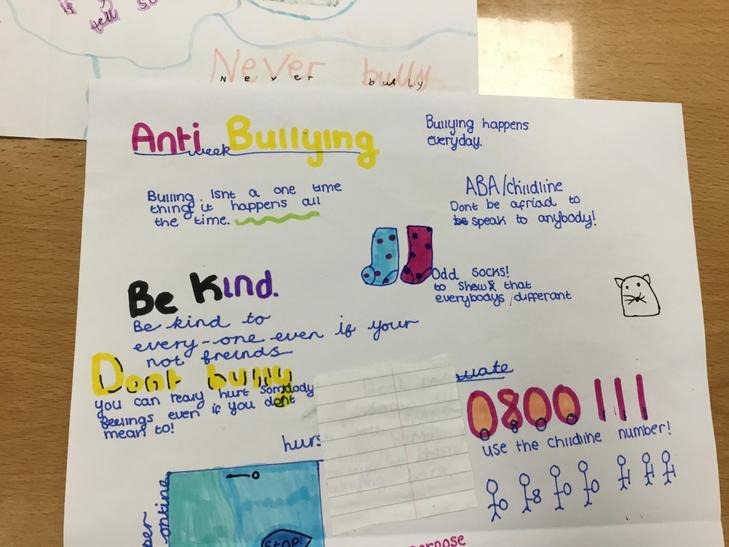 is
tell
so
Never bully
Never bully
Anti Bullying
week
Bullying happens
everyday.
Bulling. Isnt a one time
thing it happens all
the time.
ABA/childline
Dont be afriad to
be speak to anybody!
Odd socks!
to show that
everybodys differant
Be Kind.
Be kind to
every-one even if your
not freinds
Dont bully
you can realy hurt somdody
feelings even if you dont
mean to!
0800 111
use the childline number!
8
hurs
ontine
STOP!